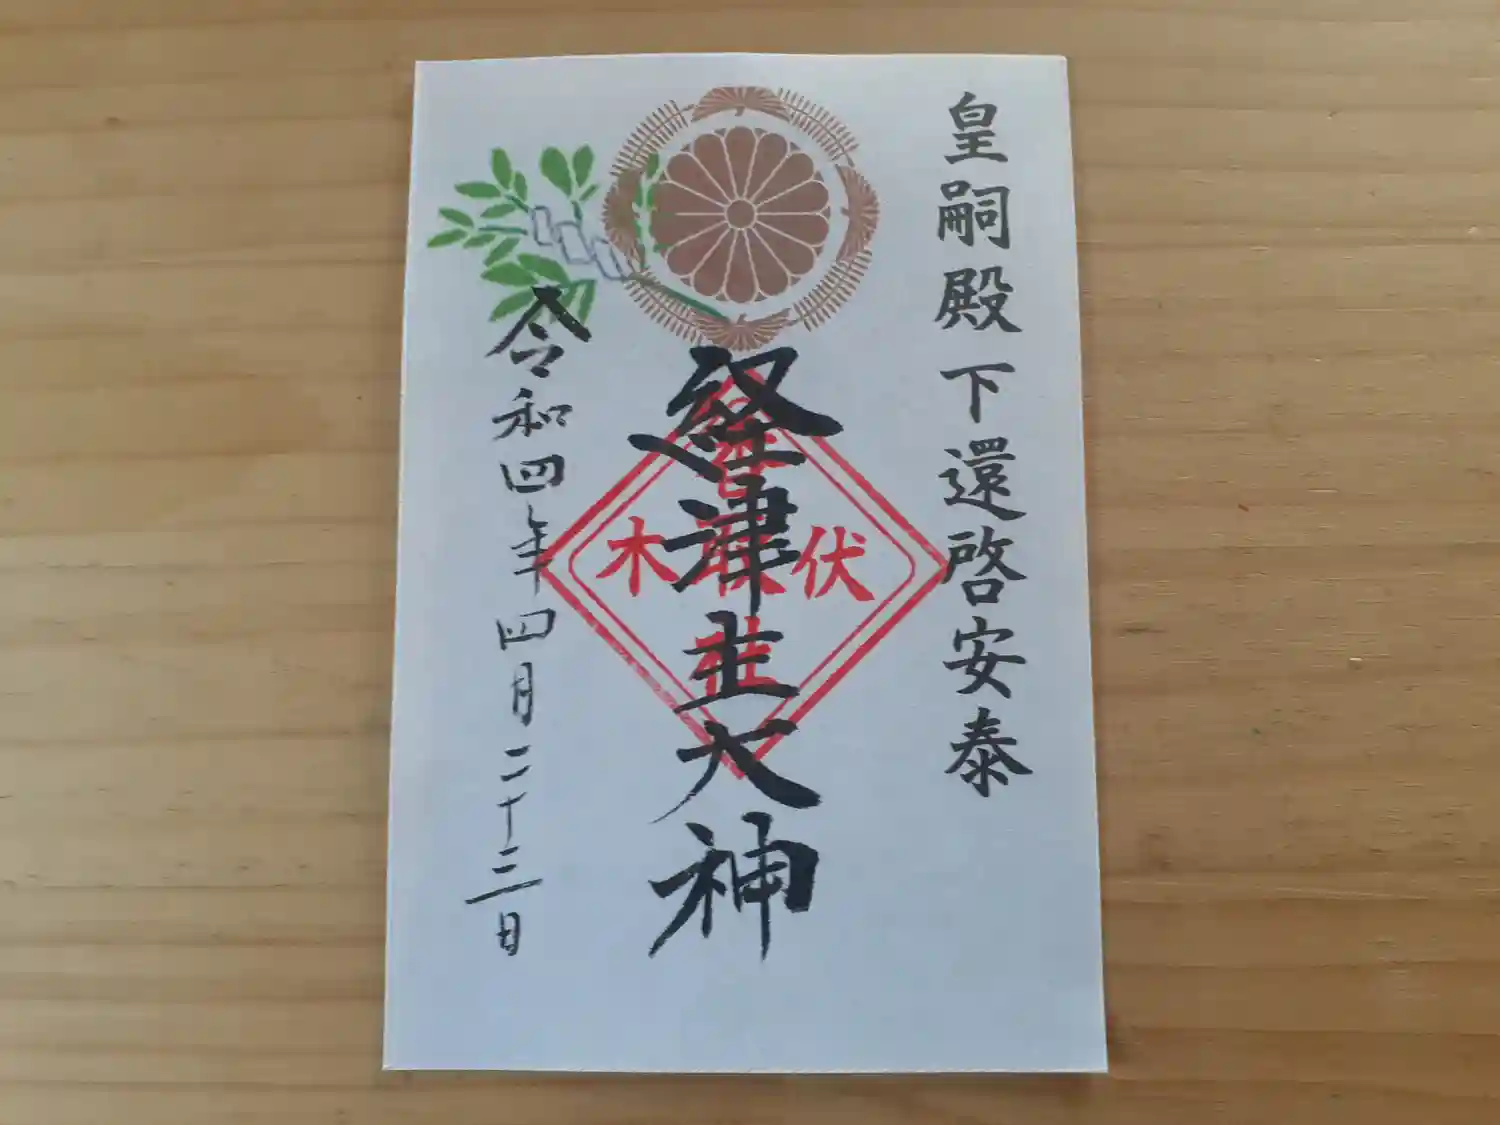 皇嗣殿下還啓安泰
経津主大神
伏
木
社
令和四年四月二十三日